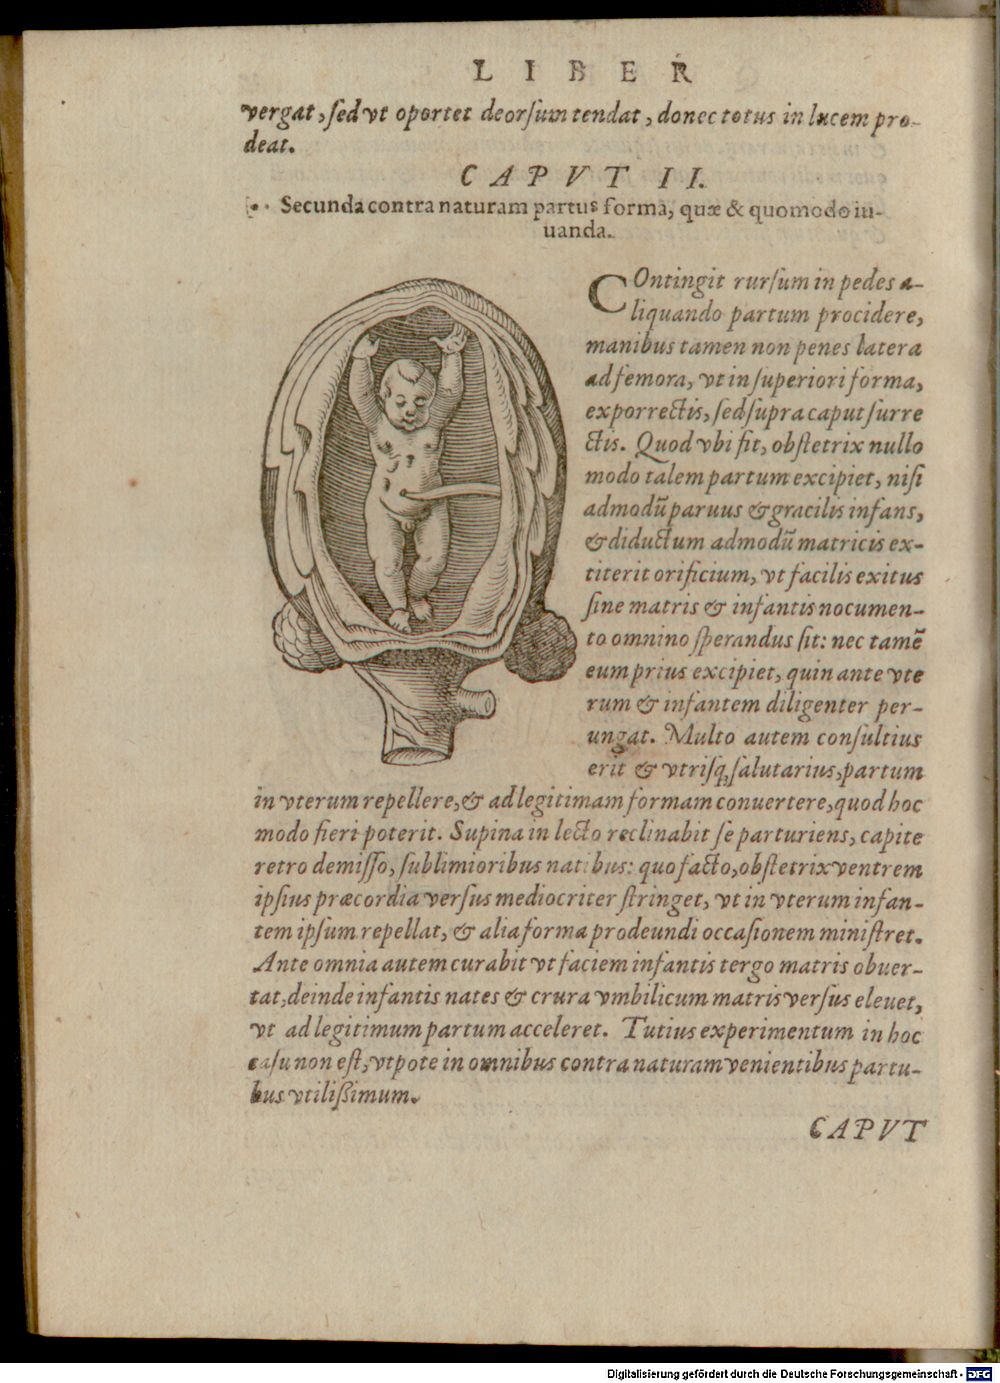 LIBER
vergat, ſed vt oportet deorſum tendat, donec totus in lucem pro-
deat.
CAPVT II.
Secunda contra naturam partus forma, quæ & quomodo iu-
uanda.
COntingit rurſum in pedes a-
liquando partum procidere,
manibus tamen non penes latera
ad femora, vt in ſuperiori forma,
exporrectis, ſed ſupra caput ſurre
ctis. Quod vbi fit, obſtetrix nullo
modo talem partum excipiet, niſi
admodũ paruus & gracilis infans,
& diductum admodũ matricis ex-
titerit orificium, vt facilis exitus
ſine matris & infantis nocumen-
to omnino ſperandus ſit: nec tamẽ
eum prius excipiet, quin ante vte
rum & infantem diligenter per-
ungat. Multo autem conſultius
erit & vtriſq; ſalutarius, partum
in vterum repellere, & ad legitimam formam conuertere, quod hoc
modo fieri poterit. Supina in lecto reclinabit ſe parturiens, capite
retro demiſſo, ſublimioribus natibus: quo facto, obſtetrix ventrem
ipſius præcordia verſus mediocriter ſtringet, vt in vterum infan-
tem ipſum repellat, & alia forma prodeundi occaſionem miniſtret.
Ante omnia autem curabit vt faciem infantis tergo matris obuer-
tat, deinde infantis nates & crura vmbilicum matris verſus eleuet,
vt ad legitimum partum acceleret. Tutius experimentum in hoc
caſu non eſt, vtpote in omnibus contra naturam venientibus partu-
bus vtiliſsimum.
CAPVT
Digitalisierung gefördert durch die Deutsche Forschungsgemeinschaft - DFG